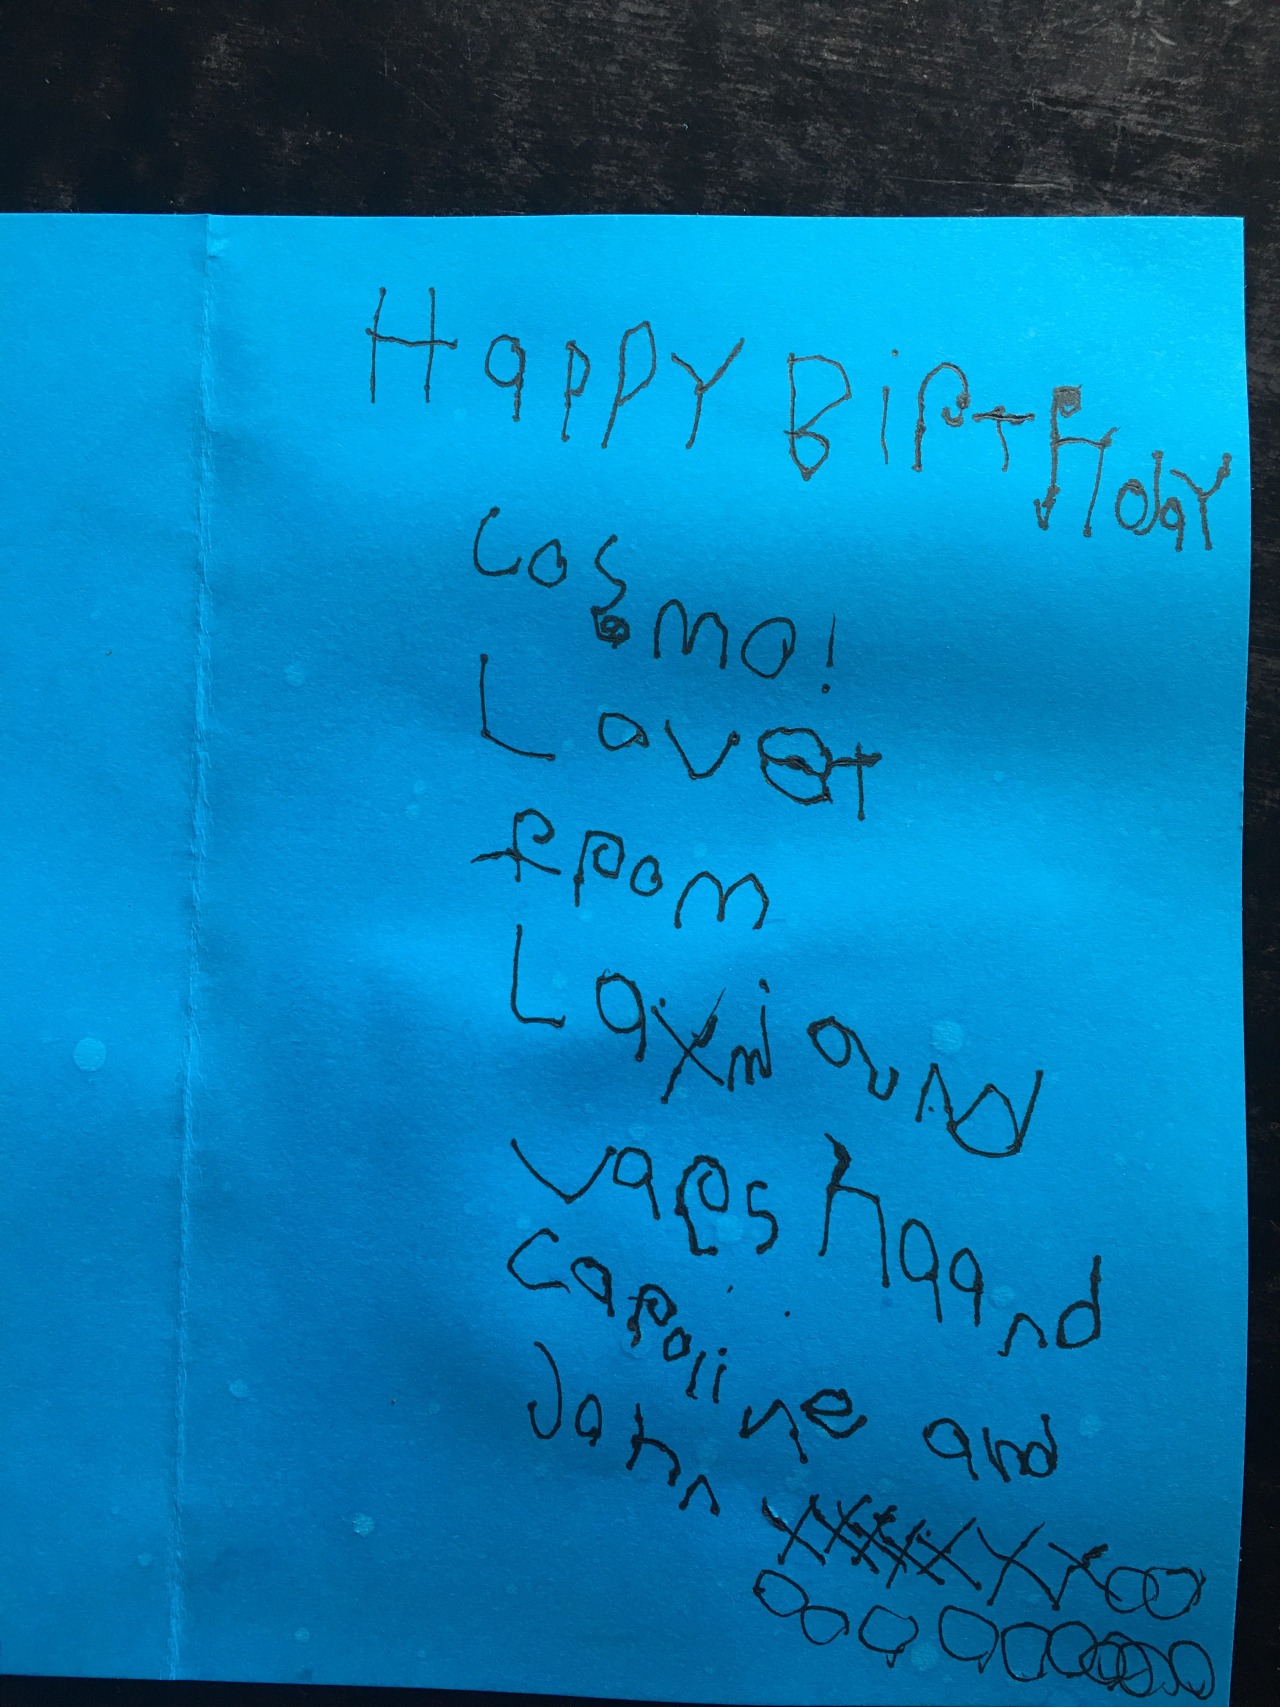 Happy Birthday
Cosmo!
Love
from
Laxmi and
Varsha and
Caroline and
John XXXXXXXOO
OOOOOOOOOO